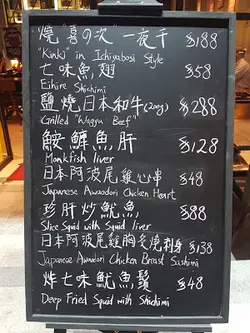 燒喜の次 一夜干 $188
"Kinki" in Ichiyabosi Style
七味魚翅 $58
Eihire Shichimi
鹽燒日本和牛(200g) $288
Grilled "Wagyu Beef"
鮟鱇魚肝 $128
Monkfish liver
日本阿波尾雞心串 $48
Japanese Awaodori Chicken Heart
珍肝炒魷魚 $88
Slice Squid with Squid liver
日本阿波尾雞胸炙燒刺身 $138
Japanese Awaodori Chicken Breast Sashimi
炸七味魷魚鬚 $48
Deep Fried Squid with Shichimi